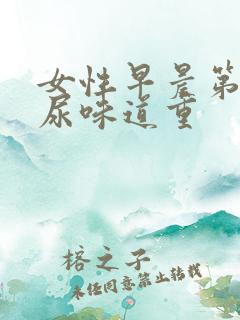 女性早晨第
尿味道重
榕之子
未经同意禁止转载